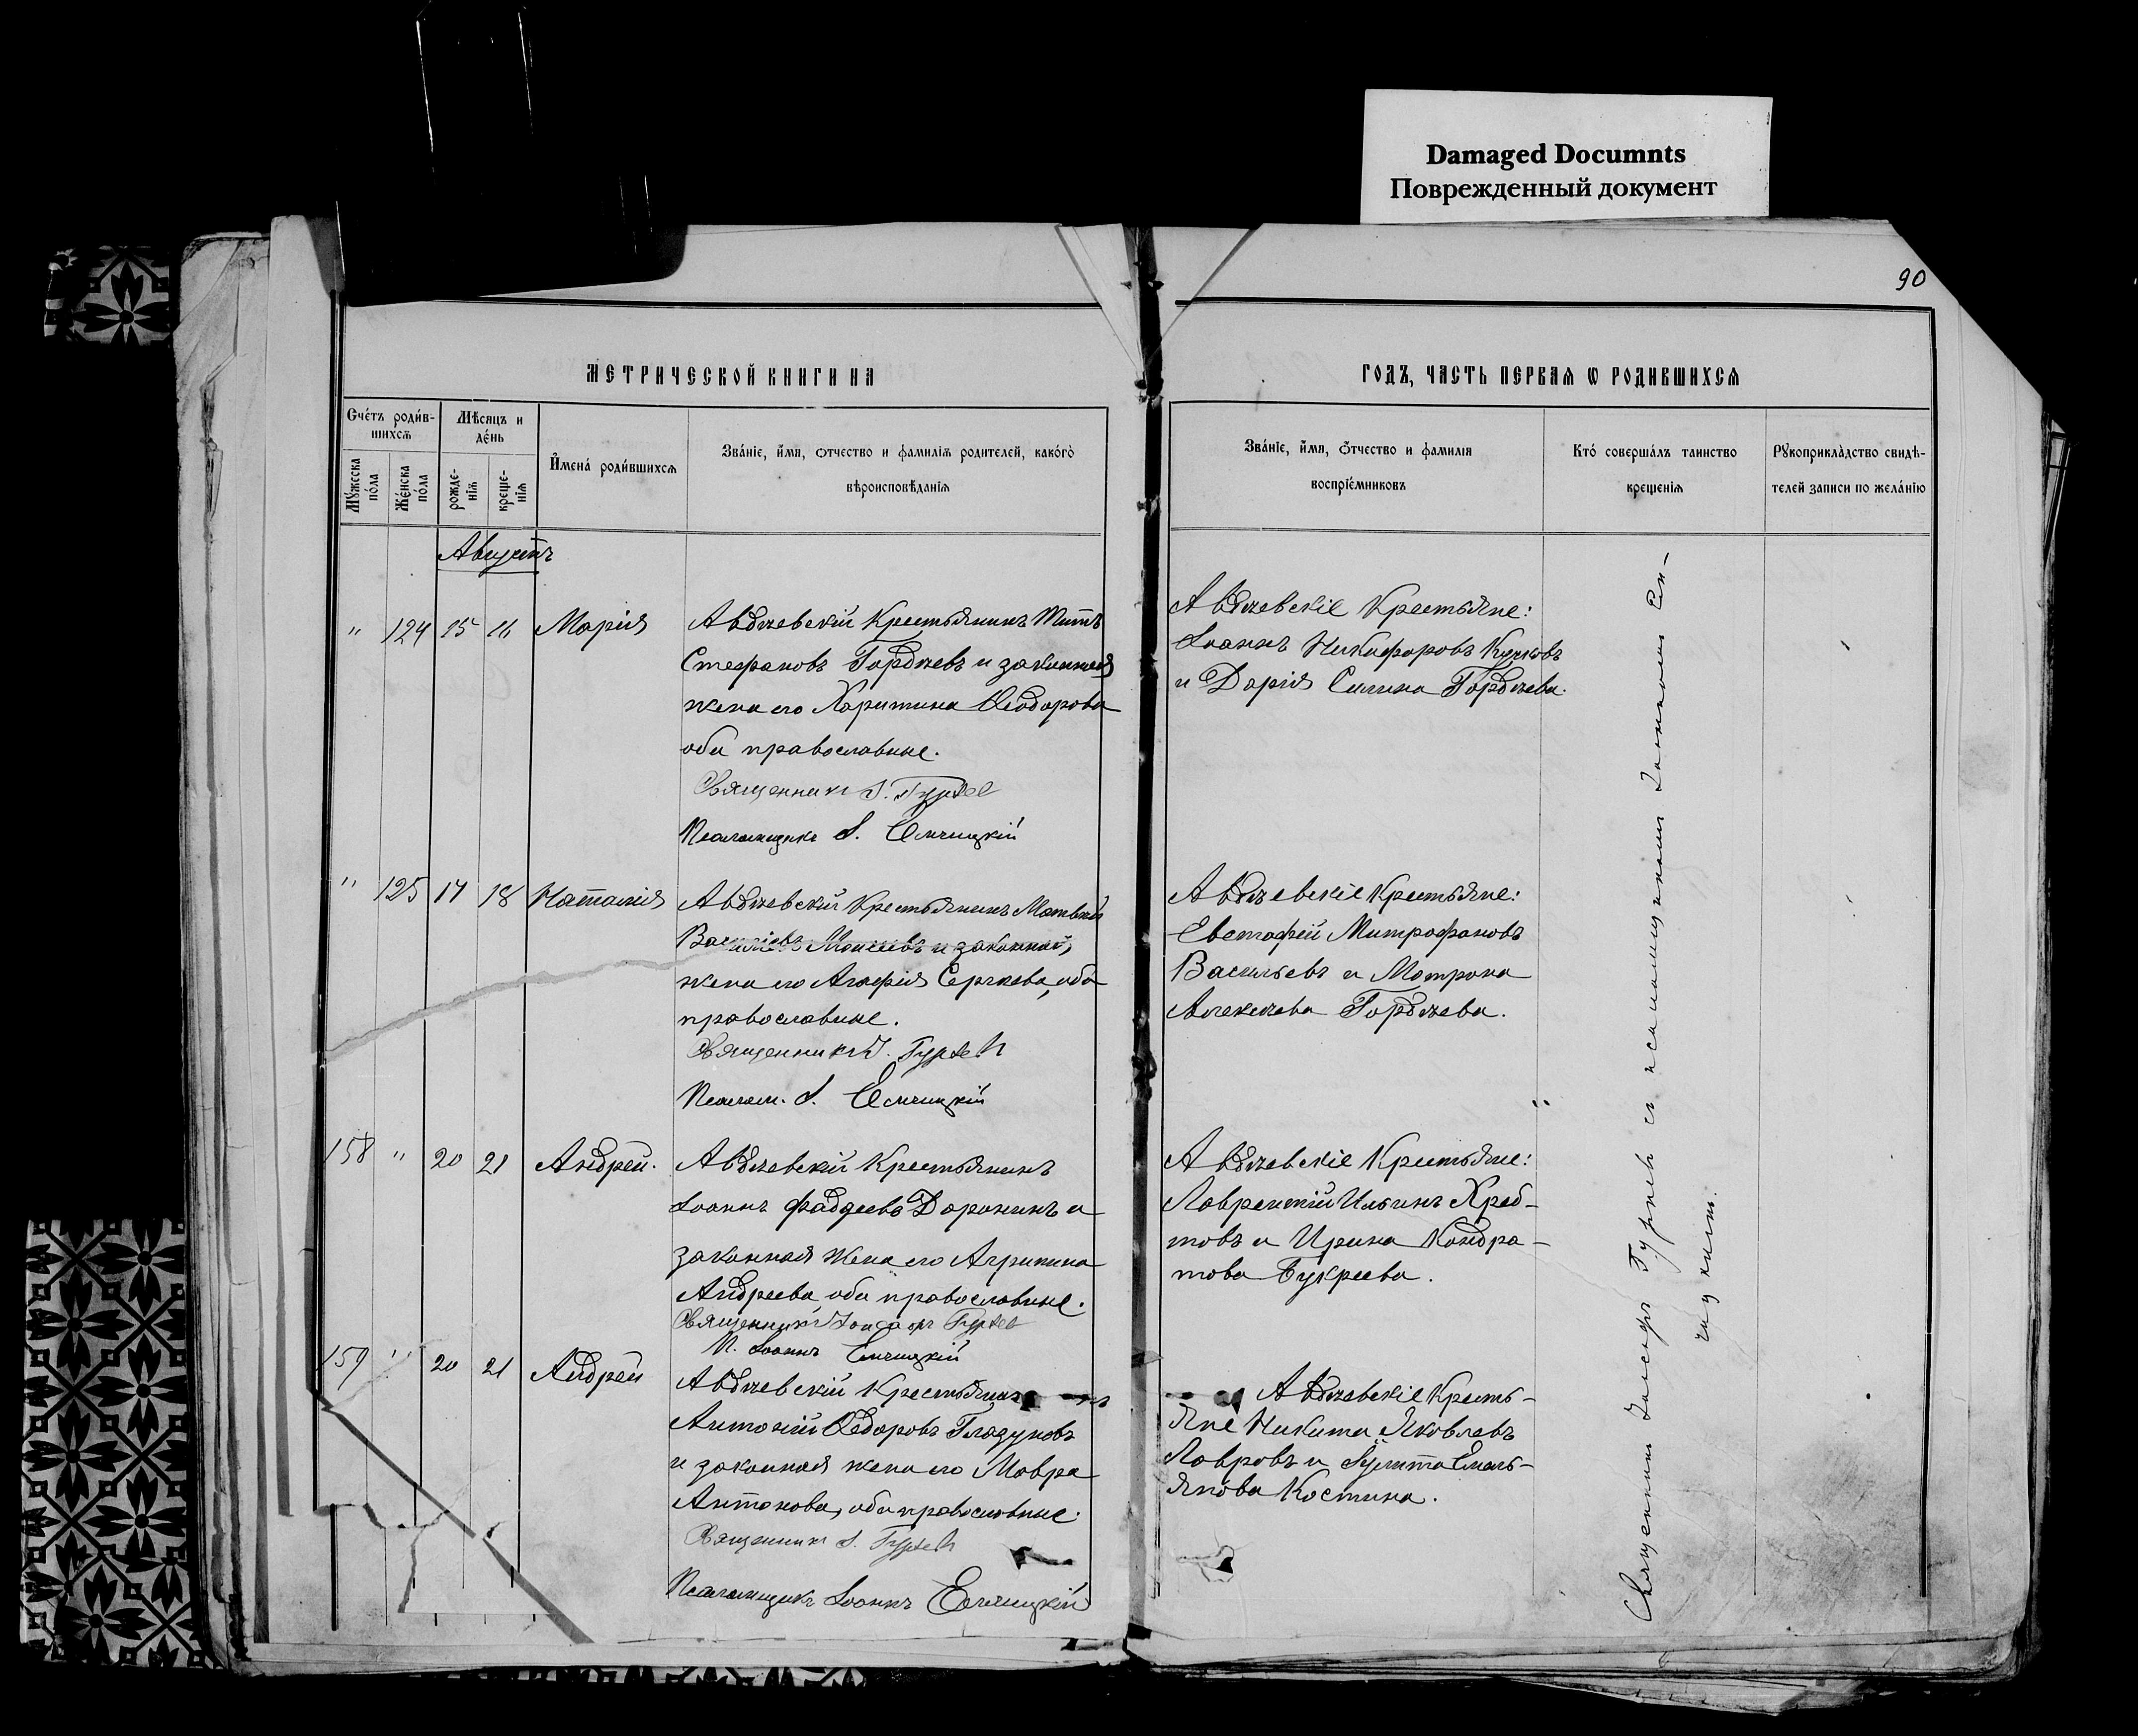 Damaged Documnts
Поврежденный документ
90
МЕТРИЧЕСКОЙ КНИГИ НА
ГОДЪ, ЧАСТЬ ПЕРВАЯ Ѡ РОДИВШИХСЯ
Счéтъ роди́в-
шихсѧ
Мѣсяцъ и
дéнь
Мꙋжеска
пóла
Жéнска
пóла
рожде-
нїѧ
креще-
нїѧ
И҆менá роди́вшихсѧ
Звáнїе, и҆́мя, ѻтчество и фамилїѧ родителей, какóгѡ
вѣроисповѣ́данїѧ
Звáнїе, и҆́мя, ѻ҆́тчество и фамилїя
воспрїéмниковъ
Ктó совершáлъ таинство
крещенїѧ
Рꙋкоприклáдство свидѣ-
телей записи по желáнїю
Августъ
" 124 15 16 Марія
Авдѣевскій Крестьянинъ Титъ
Стефановъ Гордѣевъ и законная
жена его Харитина Ѳеодорова
оба православные.
Священникъ І. Гурьев
Псаломщикъ І. Емчицкій
Авдѣевскіе Крестьяне:
Іоаннъ Никифоровъ
и Дарія Силина Гордѣева.
" 125 17 18 Наталія
Авдѣевскій Крестьянинъ Матвѣй
Василіевъ Моисеевъ и законная
жена его Агафія Сергѣева, оба
православные.
Священникъ І. Гурьев
Псалом. І. Емчицкій
Авдѣевскіе Крестьяне:
Евстафей Митрофановъ
Васильевъ и Матрона
Алексѣева Гордѣева.
158 " 20 21 Андрей.
Авдѣевскій Крестьянинъ
Іоаннъ Фаддеевъ Доронинъ и
законная жена его Агрипина
Андреева оба православные.
Священникъ Гурьев
П. Іоаннъ Емчицкій
Авдѣевскіе Крестьяне:
Лаврентій Ильинъ Хреб-
товъ и Ирина Кондра-
това Букреева.
159 " 20 21 Андрей
Авдѣевскій Крестьянинъ
Антоній Ѳедоровъ Глазуновъ
и законная жена его Мавра
Антонова, оба православные.
Священникъ І. Гурьев
Псаломщикъ Іоаннъ Емчицкій
Авдѣевскіе Кресть-
яне Никита Яковлевъ
Лавровъ и Емель-
янова Костина.
Священникъ Гурьевъ съ псаломщикомъ Іоанномъ Ем-
чицкимъ.